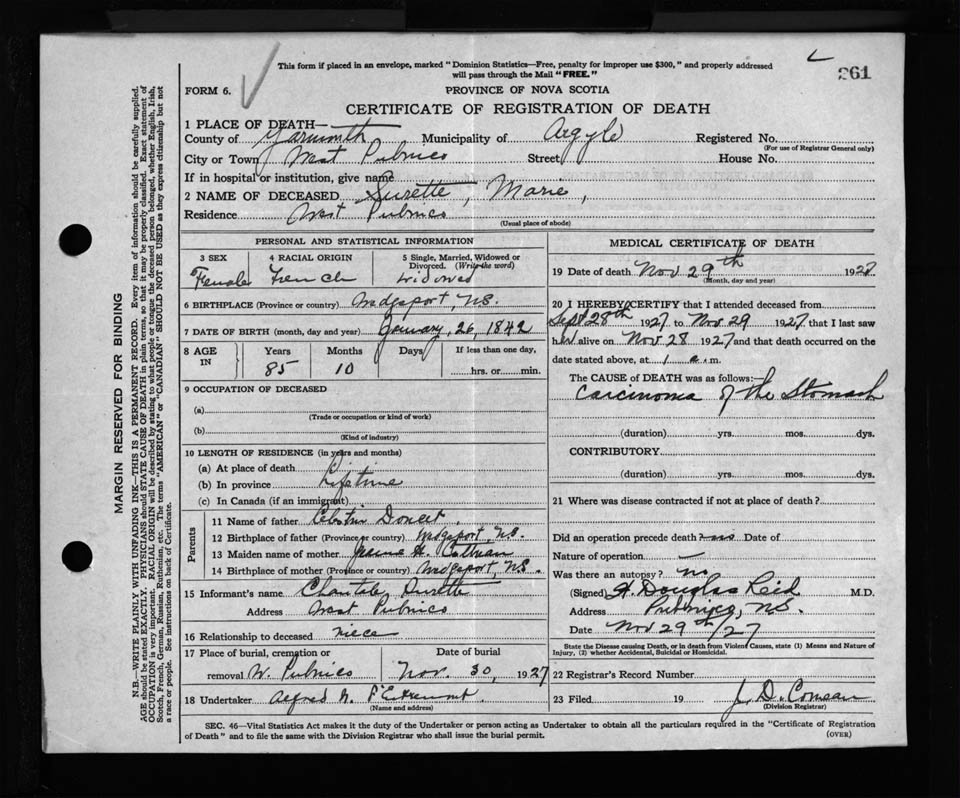 This form if placed in an envelope, marked "Dominion Statistics—Free, penalty for improper use $300," and properly addressed
will pass through the Mail "FREE."
261
FORM 6.
PROVINCE OF NOVA SCOTIA
CERTIFICATE OF REGISTRATION OF DEATH
1 PLACE OF DEATH—
County of Yarmouth Municipality of Argyle Registered No.
(For use of Registrar General only)
City or Town West Pubnico Street House No.
If in hospital or institution, give name
2 NAME OF DECEASED Surette, Marie,
Residence West Pubnico
(Usual place of abode)
PERSONAL AND STATISTICAL INFORMATION
3 SEX 4 RACIAL ORIGIN 5 Single, Married, Widowed or Divorced. (Write the word)
Female French Widowed
6 BIRTHPLACE (Province or country) Wedgeport, NS.
7 DATE OF BIRTH (month, day and year) January, 26, 1842
8 AGE IN Years Months Days If less than one day,
85 10 hrs. or min.
9 OCCUPATION OF DECEASED
(a)
(Trade or occupation or kind of work)
(b)
(Kind of industry)
10 LENGTH OF RESIDENCE (in years and months)
(a) At place of death
(b) In province Lifetime
(c) In Canada (if an immigrant)
Parents
11 Name of father Doucet
12 Birthplace of father (Province or country) Wedgeport, NS.
13 Maiden name of mother
14 Birthplace of mother (Province or country) Wedgeport, NS.
15 Informant's name Surette
Address West Pubnico
16 Relationship to deceased niece
17 Place of burial, cremation or removal W. Pubnico Date of burial Nov. 30, 1927
18 Undertaker Alfred N. d'Entremont
(Name and address)
MEDICAL CERTIFICATE OF DEATH
19 Date of death Nov 29th 1927
(Month, day and year)
20 I HEREBY CERTIFY that I attended deceased from
Sept 28th 1927 to Nov 29 1927, that I last saw
her alive on Nov 28 1927 and that death occurred on the
date stated above, at 1 a. m.
The CAUSE of DEATH was as follows:—
Carcinoma of the Stomach
(duration) yrs. mos. dys.
CONTRIBUTORY
(duration) yrs. mos. dys.
21 Where was disease contracted if not at place of death?
Did an operation precede death? no Date of
Nature of operation —
Was there an autopsy? no
(Signed) H. Douglas Reid M.D.
Address Pubnico, NS.
Date Nov 29th/27
State the Disease causing Death, or in death from Violent Causes, state (1) Means and Nature of
Injury, (2) whether Accidental, Suicidal or Homicidal.
22 Registrar's Record Number
23 Filed 19 J. D. Comeau
(Division Registrar)
SEC. 46—Vital Statistics Act makes it the duty of the Undertaker or person acting as Undertaker to obtain all the particulars required in the "Certificate of Registration
of Death" and to file the same with the Division Registrar who shall issue the burial permit.
(OVER)
MARGIN RESERVED FOR BINDING
N.B.—WRITE PLAINLY WITH UNFADING INK—THIS IS A PERMANENT RECORD. Every item of information should be carefully supplied.
AGE should be stated EXACTLY. PHYSICIANS should STATE CAUSE OF DEATH in plain terms, so that it may be properly classified. Exact statement of
OCCUPATION is very important. RACIAL ORIGIN will be described by stating to what people or tongue the deceased person belonged, whether English, Irish,
Scotch, French, German, Russian, Ruthenian, etc. The terms "AMERICAN" or "CANADIAN" SHOULD NOT BE USED as they express citizenship but not
a race or people. See instructions on back of Certificate.